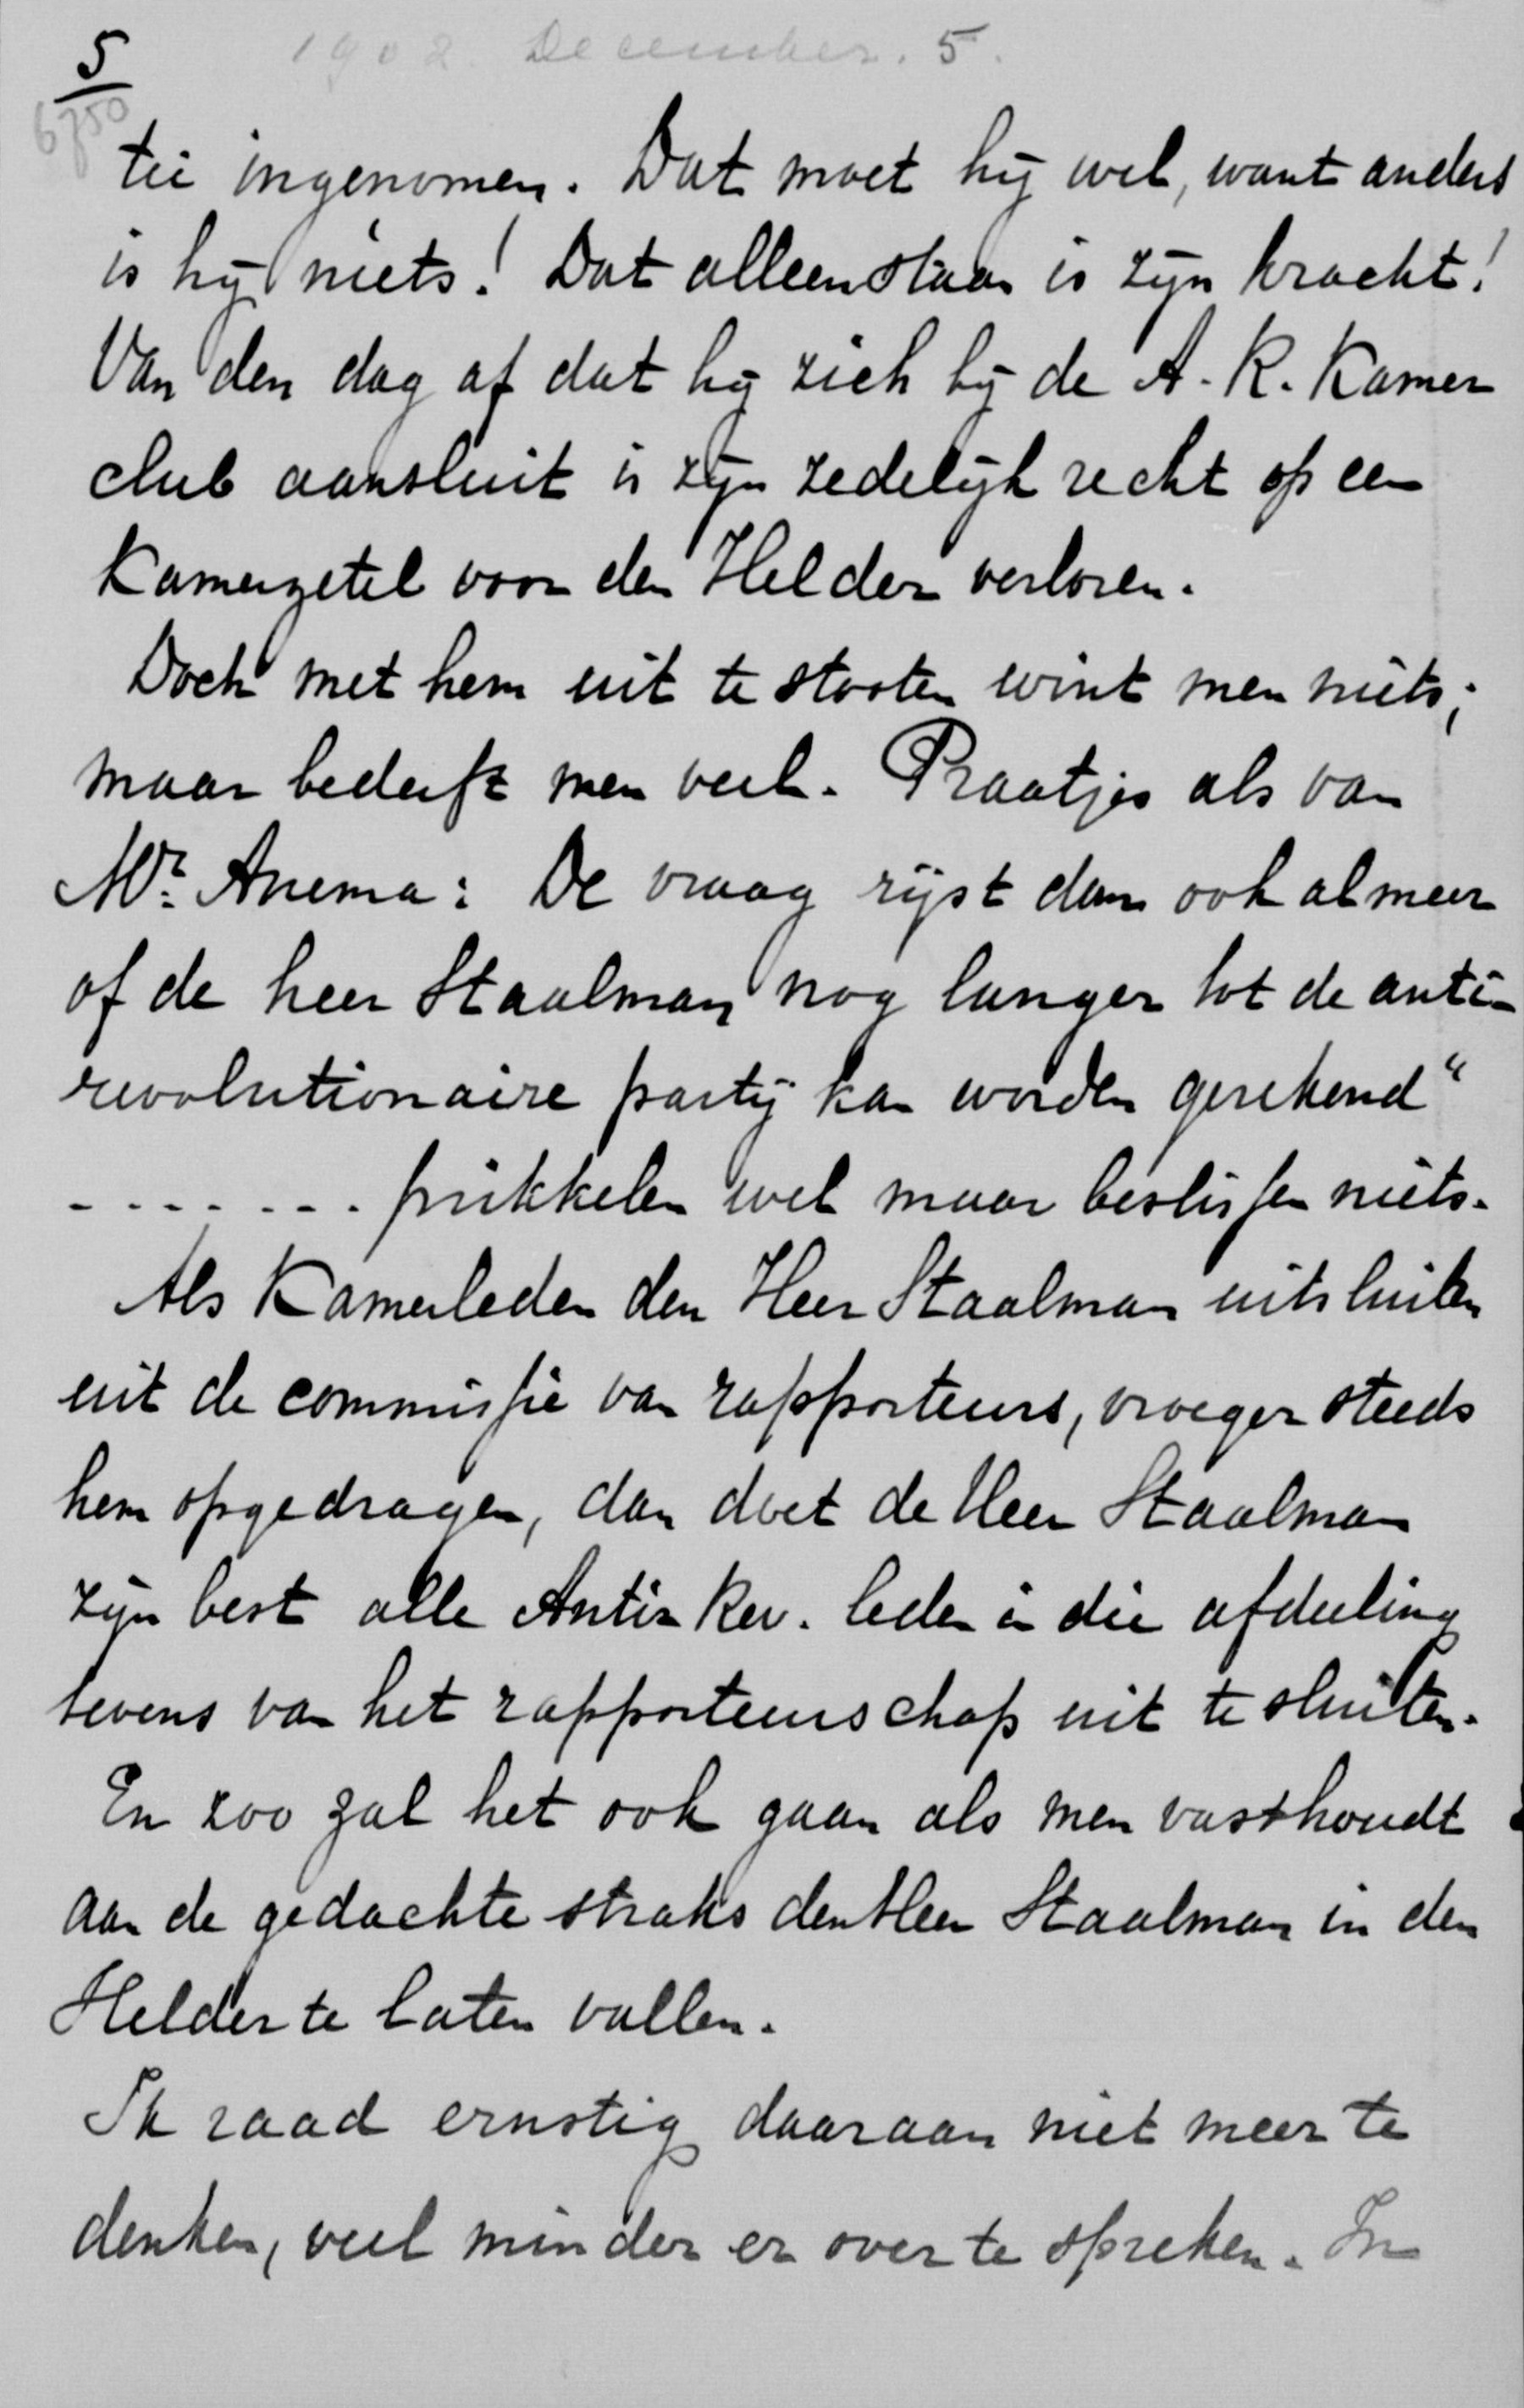 5
1902 December. 5.
6750
tie ingenomen. Dat moet hij wel, want anders
is hij niets! Dat alleenstaan is zijn kracht!
Van den dag af dat hij zich bij de A. R. Kamer
club aansluit is zijn zedelijk recht op een
Kamerzetel voor den Helder verloren.
Doch met hem uit te stooten wint men niets;
maar bederft men veel. Praatjes als van
Mr. Anema: De vraag rijst dan ook al meer
of de heer Staalman nog langer tot de anti-
revolutionaire partij kan worden gerekend"
- - - - - - - . prikkelen wel maar beslissen niets.
Als Kamerleden den Heer Staalman uitsluiten
uit de commissie van rapporteurs, vroeger steeds
hem opgedragen, dan doet de Heer Staalman
zijn best alle Anti-Rev. leden in die afdeeling
tevens van het rapporteurschap uit te sluiten.
En zoo zal het ook gaan als men vasthoudt
aan de gedachte straks den Heer Staalman in den
Helder te laten vallen.
Ik raad ernstig daaraan niet meer te
denken, veel minder er over te spreken. In